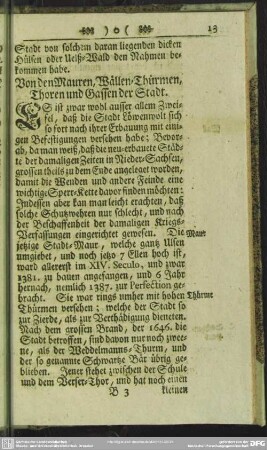 )o( 13
Stadt von solchem daran liegenden dicken
Hülsen oder Uelß-Wald den Nahmen be-
kommen habe.
Von den Mauren, Wällen, Thürmen,
Thoren und Gassen der Stadt.
ES ist zwar wohl ausser allem Zwei-
fel, daß die Stadt Löwenwolt sich
so fort nach ihrer Erbauung mit eini-
gen Befestigungen versehen habe; Bevor-
ab, da man weiß, daß die neu-erbauete Städ-
te der damaligen Zeiten in Nieder-Sachsen,
grossen theils zu dem Ende angeleget worden,
damit die Wenden und andere Feinde eine
wichtige Sperr-Kette davor finden möchten:
Indessen aber kan man leicht erachten, daß
solche Schutzwehren nur schlecht, und nach
der Beschaffenheit der damaligen Kriegs-
Verfassungen eingerichtet gewesen. Die Maur
jetzige Stadt-Maur, welche gantz Ulsen
umgiebet, und noch jetzo 7 Ellen hoch ist,
ward allererst im XIV. Seculo, und zwar
1381. zu bauen angefangen, und 6 Jahr
hernach, nemlich 1387. zur Perfection ge-
bracht. Sie war rings umher mit hohen Thürme
Thürmen versehen; welche der Stadt so
zur Zierde, als zur Verthädigung dieneten.
Nach dem grossen Brand, der 1646. die
Stadt betroffen, sind davon nur noch zwee-
ne, als der Weddelmanns-Thurm, und
der so genannte Schwartze Bär übrig ge-
blieben. Jener stehet zwischen der Schule
und dem Verser-Thor, und hat noch einen
B 3 kleinen